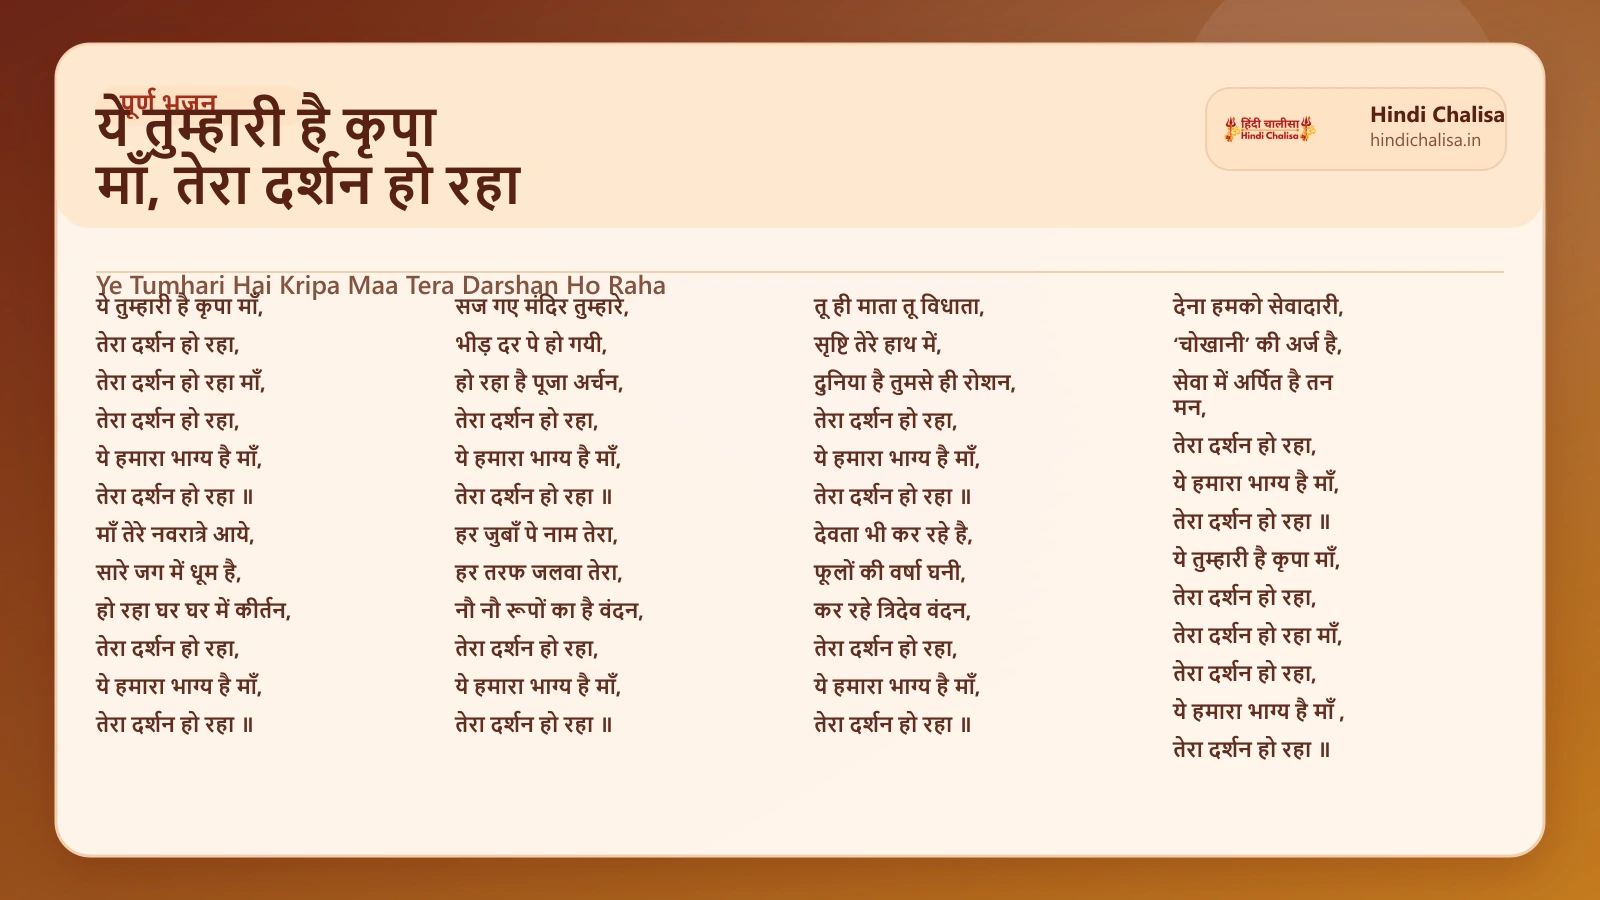 पूर्ण भजन
ये तुम्हारी है कृपा
माँ, तेरा दर्शन हो रहा
हिंदी चालीसा
Hindi Chalisa
Hindi Chalisa
hindichalisa.in
Ye Tumhari Hai Kripa Maa Tera Darshan Ho Raha
ये तुम्हारी है कृपा माँ,
तेरा दर्शन हो रहा,
तेरा दर्शन हो रहा माँ,
तेरा दर्शन हो रहा,
ये हमारा भाग्य है माँ,
तेरा दर्शन हो रहा ॥
माँ तेरे नवरात्रे आये,
सारे जग में धूम है,
हो रहा घर घर में कीर्तन,
तेरा दर्शन हो रहा,
ये हमारा भाग्य है माँ,
तेरा दर्शन हो रहा ॥
सज गए मंदिर तुम्हारे,
भीड़ दर पे हो गयी,
हो रहा है पूजा अर्चन,
तेरा दर्शन हो रहा,
ये हमारा भाग्य है माँ,
तेरा दर्शन हो रहा ॥
हर जुबाँ पे नाम तेरा,
हर तरफ जलवा तेरा,
नौ नौ रूपों का है वंदन,
तेरा दर्शन हो रहा,
ये हमारा भाग्य है माँ,
तेरा दर्शन हो रहा ॥
तू ही माता तू विधाता,
सृष्टि तेरे हाथ में,
दुनिया है तुमसे ही रोशन,
तेरा दर्शन हो रहा,
ये हमारा भाग्य है माँ,
तेरा दर्शन हो रहा ॥
देवता भी कर रहे है,
फूलों की वर्षा घनी,
कर रहे त्रिदेव वंदन,
तेरा दर्शन हो रहा,
ये हमारा भाग्य है माँ,
तेरा दर्शन हो रहा ॥
देना हमको सेवादारी,
‘चोखानी’ की अर्ज है,
सेवा में अर्पित है तन
मन,
तेरा दर्शन हो रहा,
ये हमारा भाग्य है माँ,
तेरा दर्शन हो रहा ॥
ये तुम्हारी है कृपा माँ,
तेरा दर्शन हो रहा,
तेरा दर्शन हो रहा माँ,
तेरा दर्शन हो रहा,
ये हमारा भाग्य है माँ ,
तेरा दर्शन हो रहा ॥